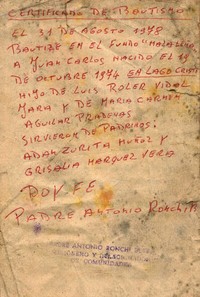 CERTIFICADO DE BAUTISMO
EL 31 DE AGOSTO 1978
BAUTIZE EN EL FUNDO
A JUAN CARLOS NACIDO EL 19
DE OCTUBRE 1974 EN LAGO
HIJO DE LUIS ROLER VIDAL
JARA Y DE MARIA CARMEN
AGUILAR PRADENAS
SIRVIERON DE PADRINOS:
ADAN ZURITA MUÑOZ Y
GRISALIA MARQUEZ VERA
DOY FE
PADRE ANTONIO RONCHI
ANTONIO RONCHI